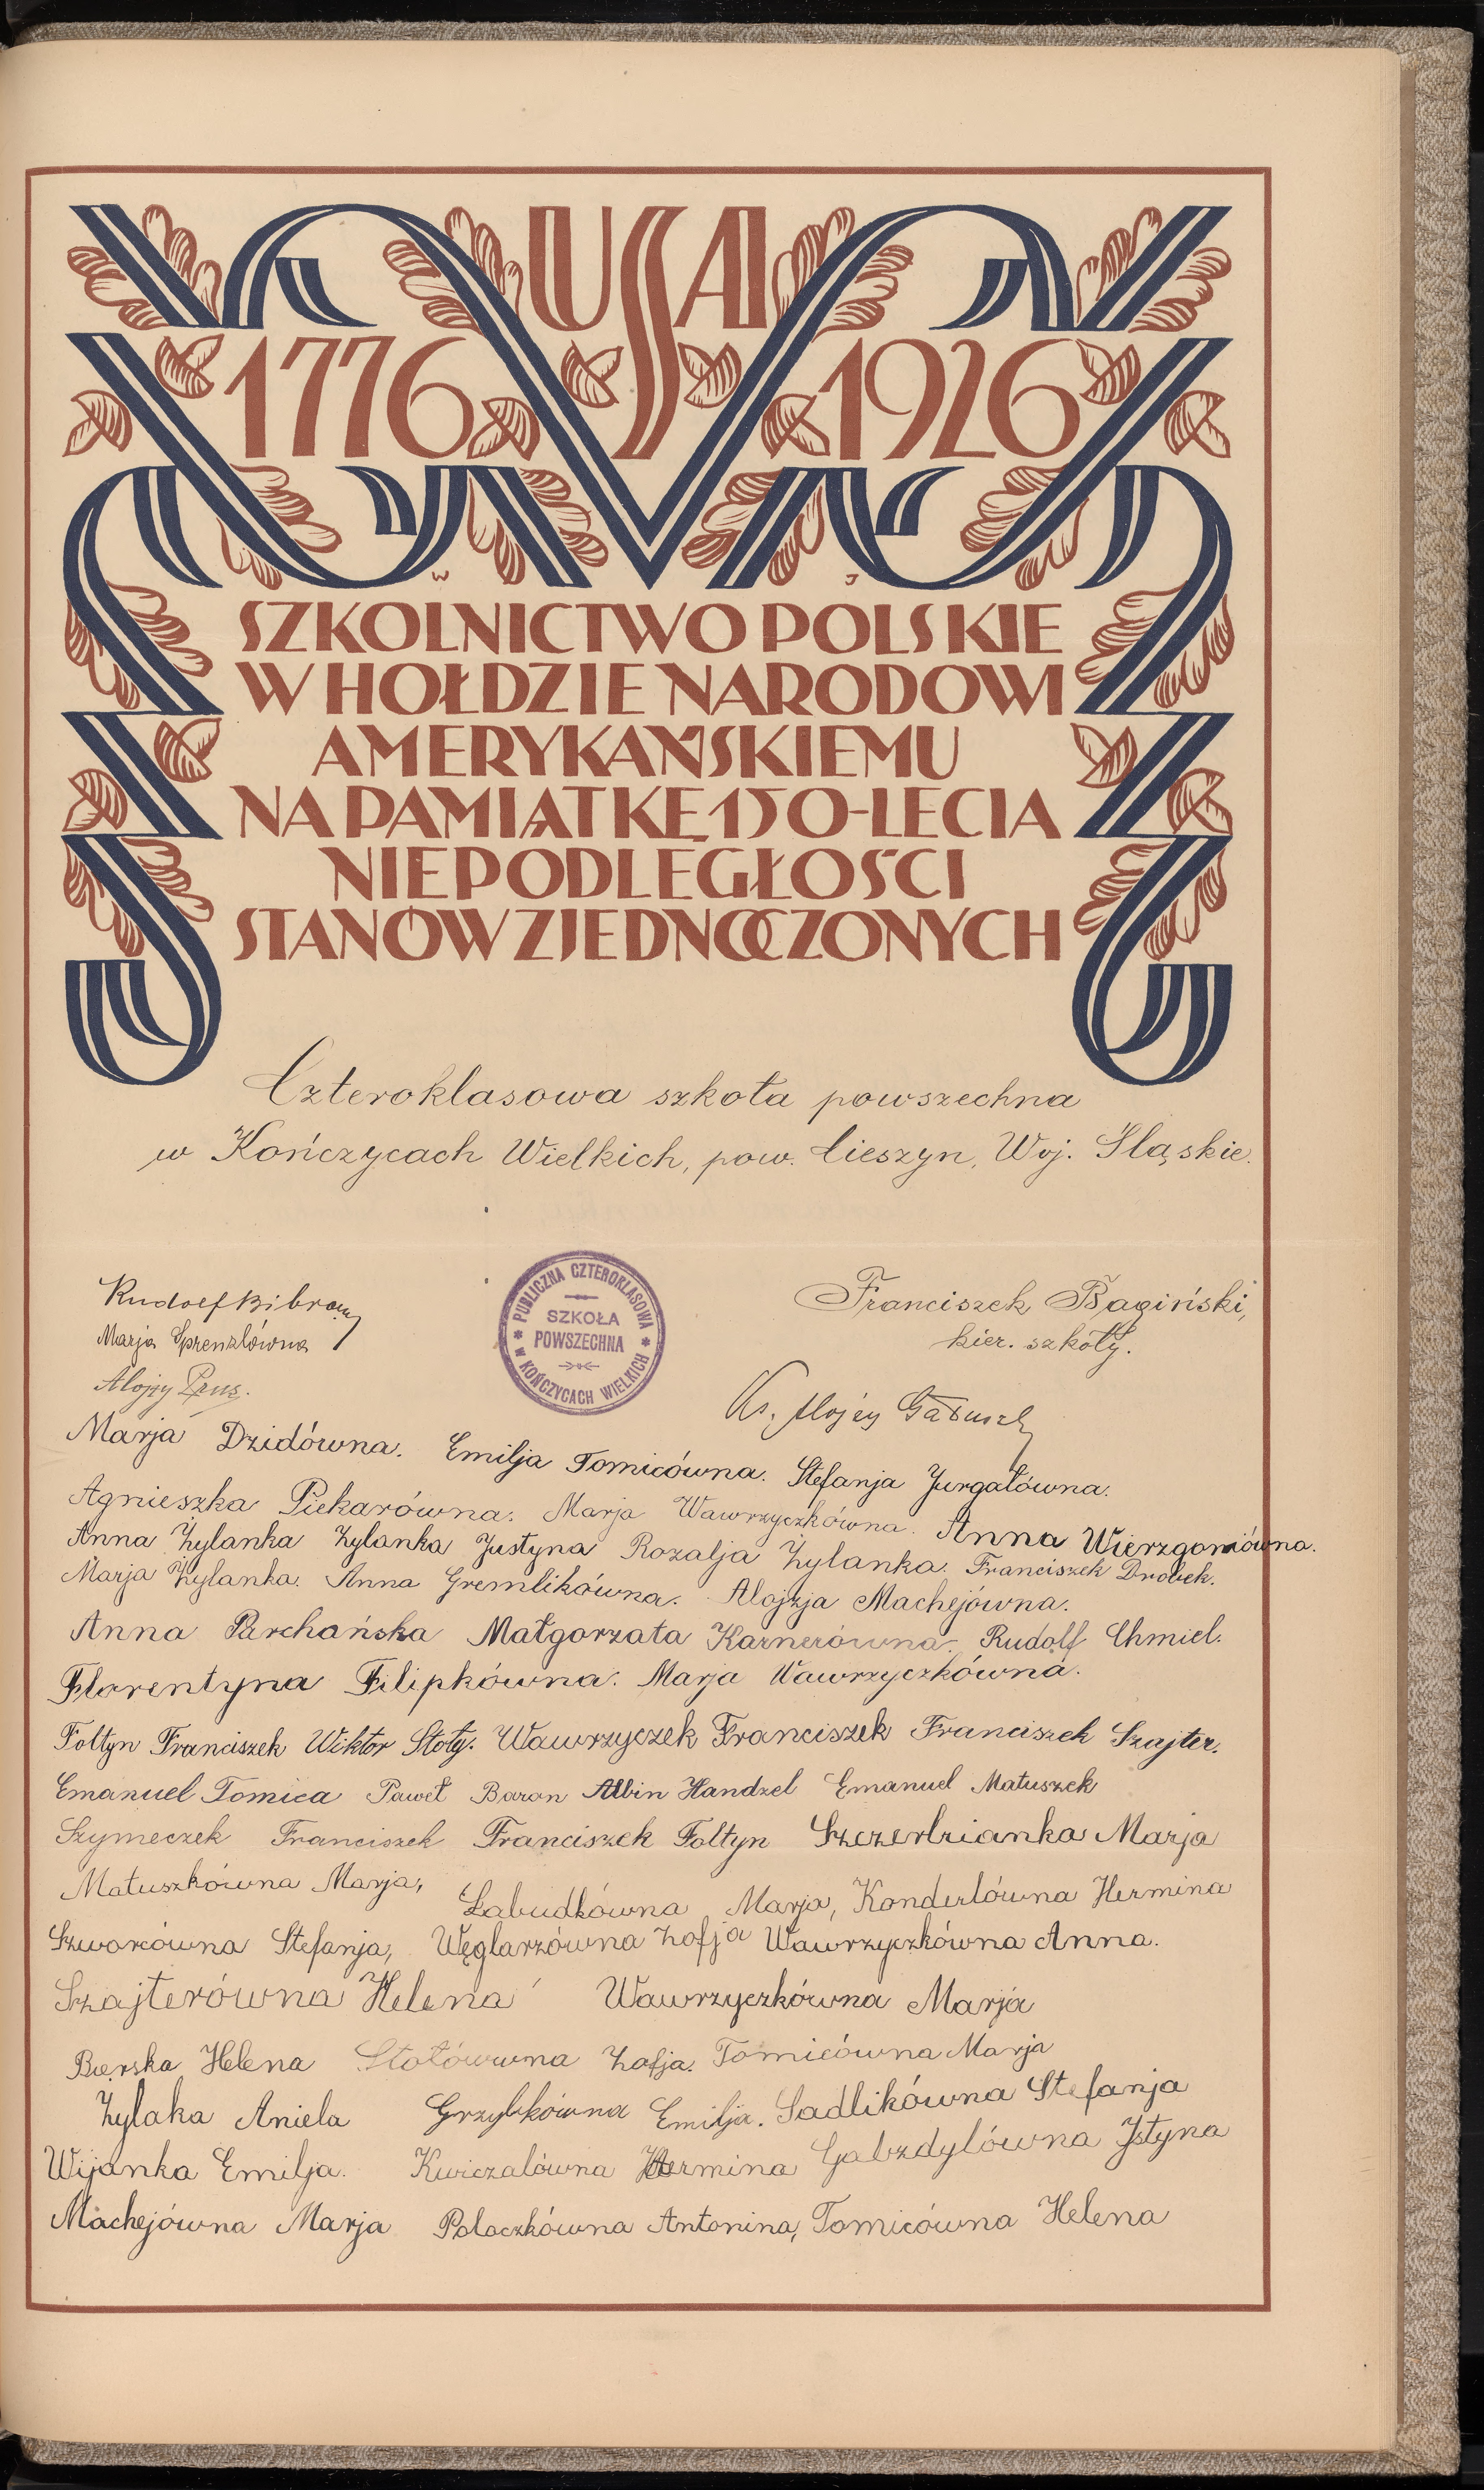 USA
1776 1926
W J
SZKOLNICTWO POLSKIE
W HOŁDZIE NARODOWI
AMERYKAŃSKIEMU
NA PAMIĄTKĘ 150-LECIA
NIEPODLEGŁOŚCI
STANÓW ZJEDNOCZONYCH
Czteroklasowa szkoła powszechna
w Kończycach Wielkich, pow. Cieszyn, Woj. Śląskie.
Rudolf Bibrowy
Marja Sprenzlówna
Alojzy Prus.
PUBLICZNA CZTEROKLASOWA
SZKOŁA
POWSZECHNA
W KOŃCZYCACH WIELKICH
Franciszek Bagiński,
kier. szkoły.
Ks. Alojzy
Marja Dzidówna. Emilja Tomicówna. Stefanja Jurgałówna.
Agnieszka Piekarówna. Marja Wawrzyczkówna. Anna Wierzgoniówna.
Anna Żylanka Żylanka Justyna Rozalja Żylanka. Franciszek Drobek.
Marja Żylanka. Anna Gremlikówna. Alojzja Machejówna.
Anna Parchańska Małgorzata Karnerówna. Rudolf Chmiel.
Florentyna Filipkówna. Marja Wawrzyczkówna.
Foltyn Franciszek Wiktor Stoły. Wawrzyczek Franciszek Franciszek Szajter.
Emanuel Tomica Paweł Baron Albin Handzel Emanuel Matuszek
Szymeczek Franciszek Franciszek Foltyn Szczerbianka Marja
Matuszkówna Marja, Łabudkówna Marja, Konderlówna Hermina
Szworcówna Stefanja, Węglarzówna Zofja Wawrzyczkówna Anna.
Szajterówna Helena Wawrzyczkówna Marja
Bierska Helena Stołówwna Zofja. Tomicówna Marja
Żylaka Aniela Grzybkówna Emilja. Sadlikówna Stefanja
Wijanka Emilja. Kwiczalówna Hermina Gabzdylówna Jstyna
Machejówna Marja Polaczkówna Antonina, Tomicówna Helena